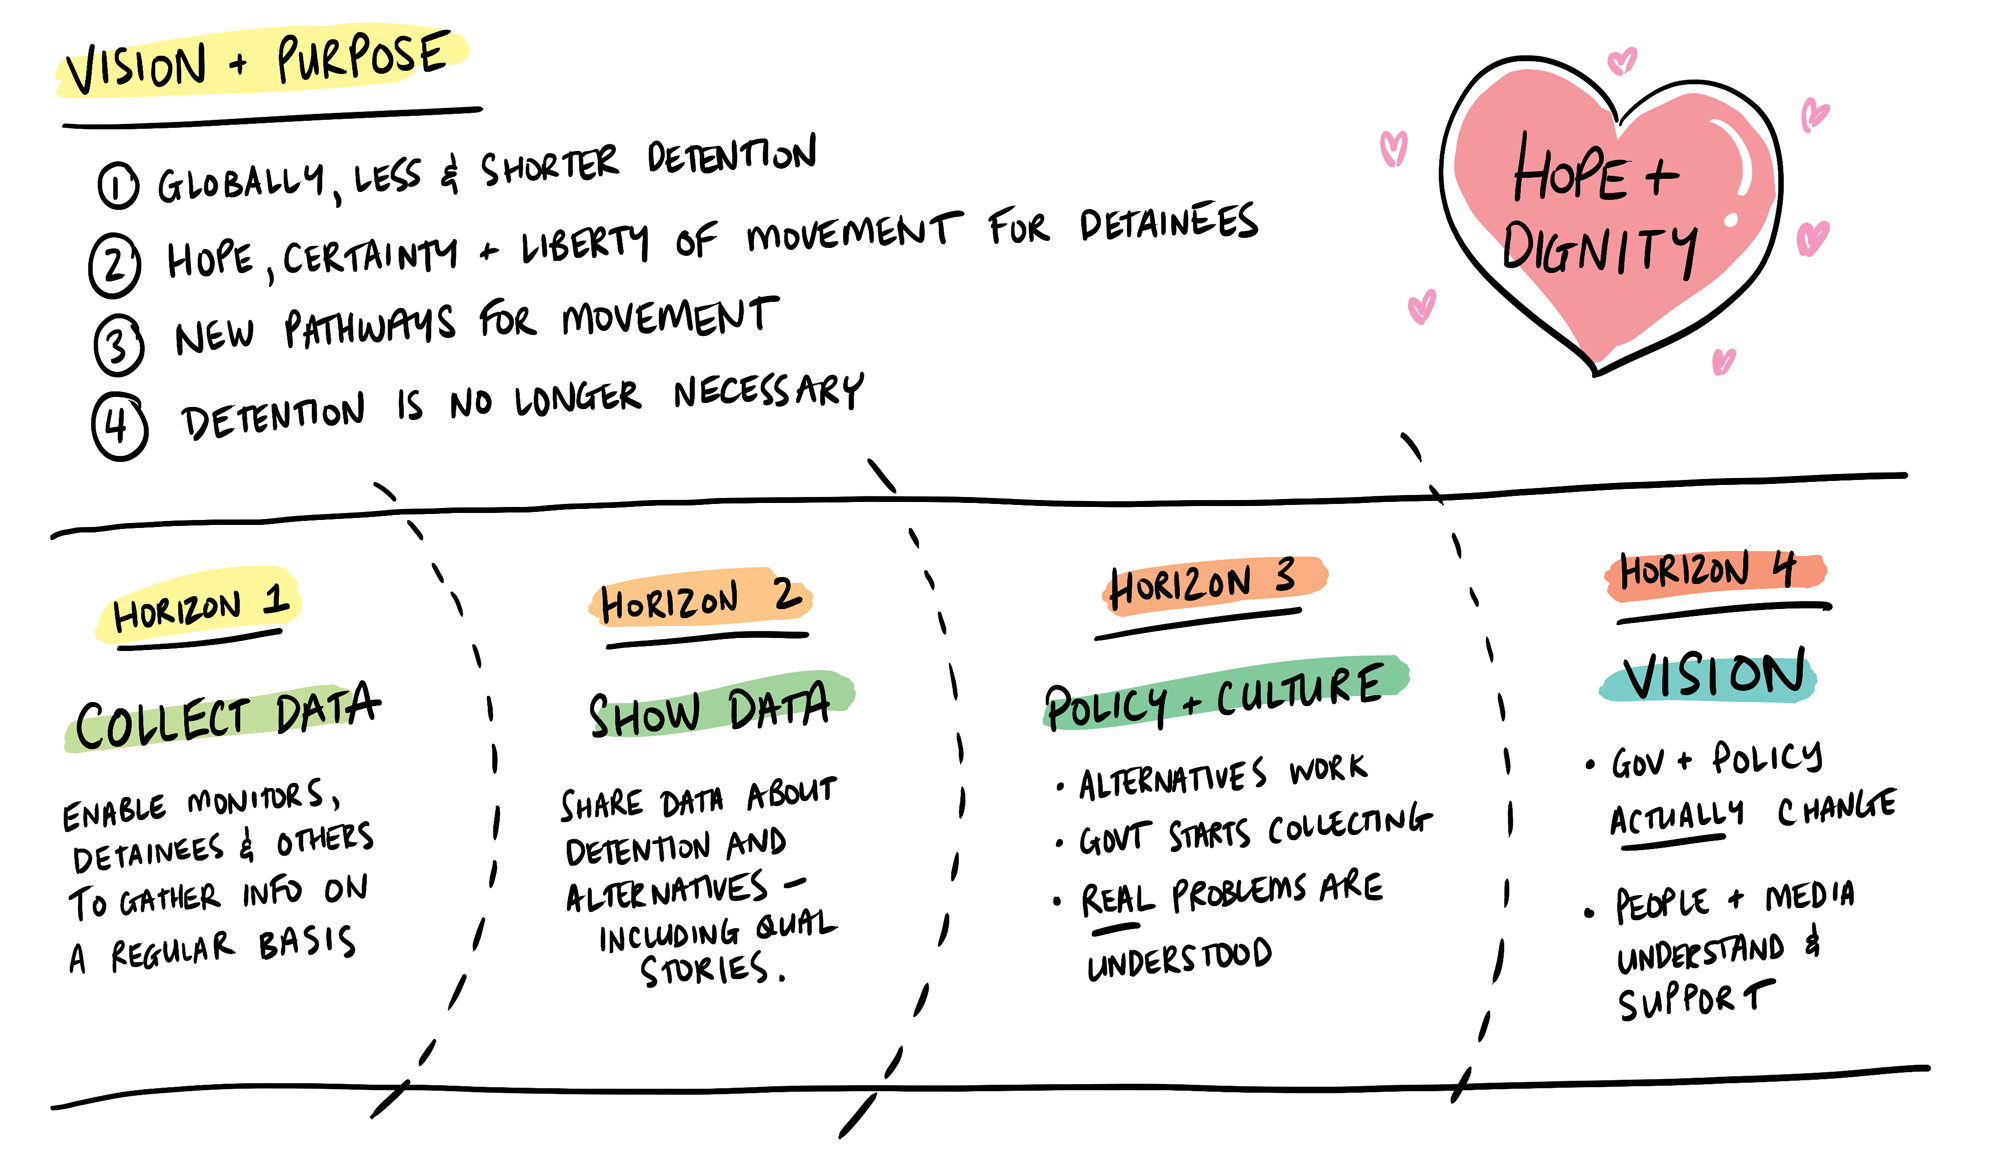 VISION + PURPOSE
1 GLOBALLY, LESS & SHORTER DETENTION
2 HOPE, CERTAINTY + LIBERTY OF MOVEMENT FOR DETAINEES
3 NEW PATHWAYS FOR MOVEMENT
4 DETENTION IS NO LONGER NECESSARY
HOPE +
DIGNITY
HORIZON 1
COLLECT DATA
ENABLE MONITORS,
DETAINEES & OTHERS
TO GATHER INFO ON
A REGULAR BASIS
HORIZON 2
SHOW DATA
SHARE DATA ABOUT
DETENTION AND
ALTERNATIVES –
INCLUDING QUAL
STORIES.
HORIZON 3
POLICY + CULTURE
• ALTERNATIVES WORK
• GOVT STARTS COLLECTING
• REAL PROBLEMS ARE
UNDERSTOOD
HORIZON 4
VISION
• GOV + POLICY
ACTUALLY CHANGE
• PEOPLE + MEDIA
UNDERSTAND &
SUPPORT